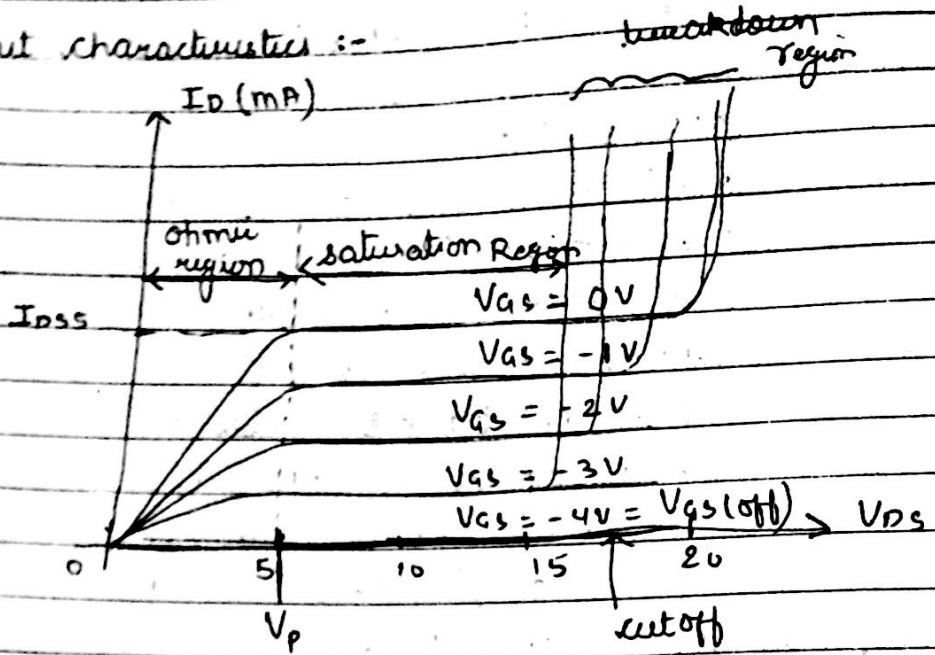 ut characteristics :-
breakdown
region
ID (mA)
ohmic
region
saturation Region
VGS = 0V
IDSS
VGS = -1V
VGS = -2V
VGS = -3V
VGS = -4V = VGS(off)
VDS
0 5 10 15 20
Vp
cutoff